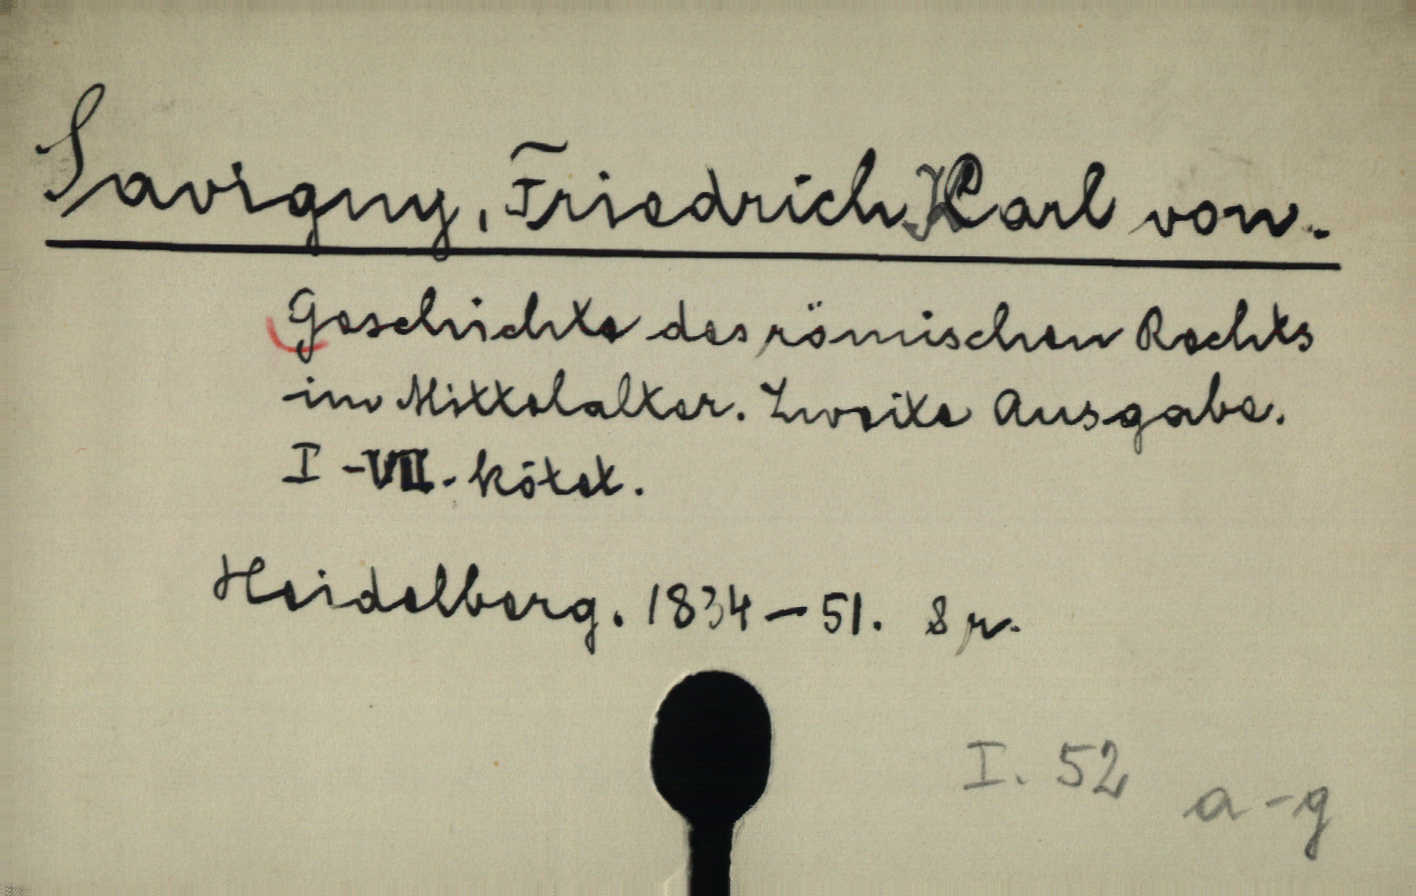 Savigny, Friedrich Karl von.
Geschichte des römischen Rechts
im Mittelalter. Zweite Ausgabe.
I-VII. kötet.
Heidelberg. 1834-51. 8 r.
I. 52 a-g